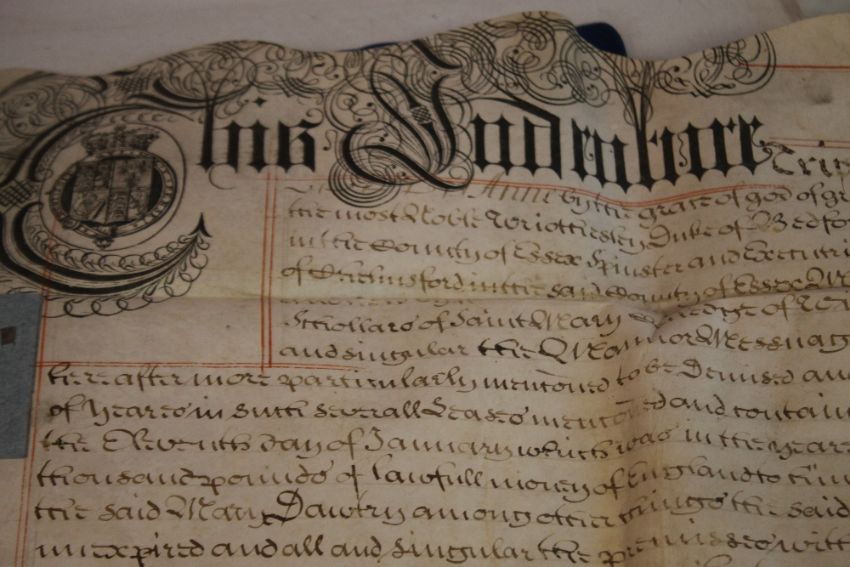 This Indenture Trip
Anne by the grace of god of gr
the most Noble Wriothesley Duke of Bedfo
in the County of Essex Spinster and Executri
of Chelmsford in the said County of Essex
Schollars of Saint Mary Colledge of
and singular the Mannor Messuag
hereafter more particularly mentoned to be Demised and
of yeares in such severall Leases mentoned and contain
the Eleventh day of January which was in the yeare
thousand pounds of lawfull money of England to him
the said Mary Dawtry among other things the said
unexpired and all and singular the premisses with